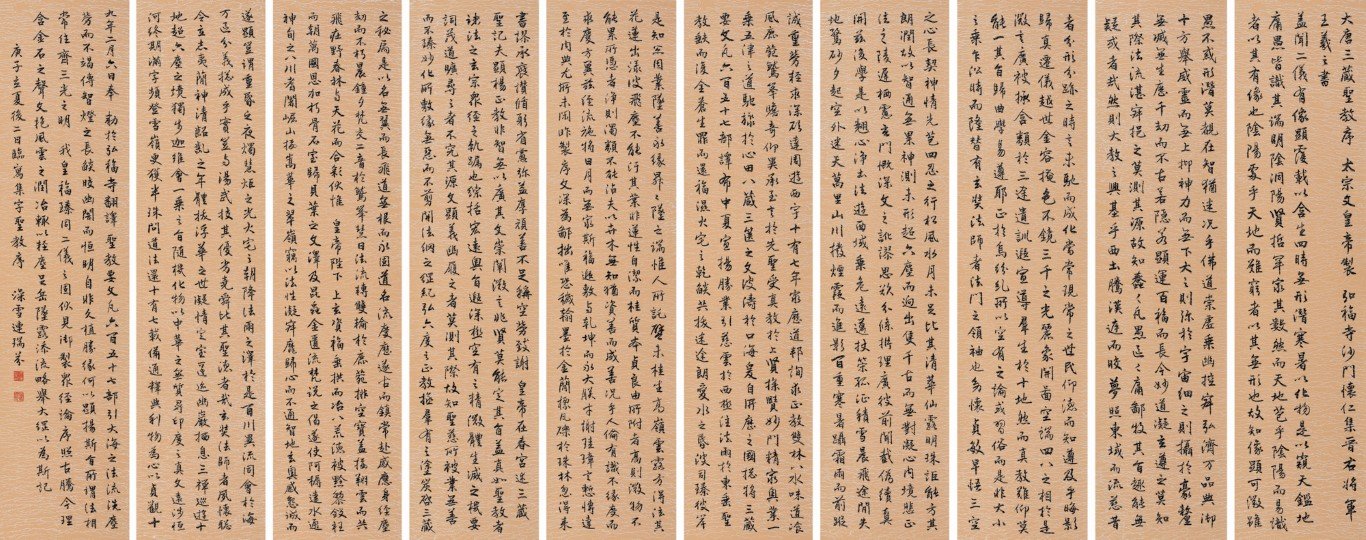 大唐三藏聖教序 太宗文皇帝製 弘福寺沙門懷仁集晉右將軍
王羲之書
蓋聞二儀有像顯覆載以含生四時無形潛寒暑以化物是以窺天鑑地
庸愚皆識其端明陰洞陽賢哲罕窮其數然而天地苞乎陰陽而易識
者以其有像也陰陽處乎天地而難窮者以其無形也故知像顯可徵雖
愚不惑形潛莫覩在智猶迷況乎佛道崇虛乘幽控寂弘濟萬品典御
十方舉威靈而無上抑神力而無下大之則彌於宇宙細之則攝於毫釐
無滅無生歷千劫而不古若隱若顯運百福而長今妙道凝玄遵之莫知
其際法流湛寂挹之莫測其源故知蠢蠢凡愚區區庸鄙投其旨趣能無
疑或者哉然則大教之興基乎西土騰漢庭而皎夢照東域而流慈昔
者分形分跡之時言未馳而成化當常現常之世民仰德而知遵及乎晦影
歸真遷儀越世金容掩色不鏡三千之光麗象開圖空端四八之相於是
微言廣被拯含類於三途遺訓遐宣導群生於十地然而真教難仰莫
能一其旨歸曲學易遵邪正於焉紛糺所以空有之論或習俗而是非大小
之乘乍沿時而隆替有玄奘法師者法門之領袖也幼懷貞敏早悟三空
之心長契神情先苞四忍之行松風水月未足比其清華仙露明珠詎能方其
朗潤故以智通無累神測未形超六塵而迥出隻千古而無對凝心內境悲正
法之陵遲栖慮玄門慨深文之訛謬思欲分條析理廣彼前聞截偽續真
開茲後學是以翹心淨土法遊西域乘危遠邁杖策孤征積雪晨飛途間失
地驚砂夕起空外迷天萬里山川撥煙霞而進影百重寒暑躡霜雨而前蹤
誠重勞輕求深願達周遊西宇十有七年窮歷道邦詢求正教雙林八水味道湌
風鹿菀鷲峯瞻奇仰異承至言於先聖受真教於上賢探賾妙門精窮奧業一
乘五律之道馳驟於心田八藏三篋之文波濤於口海爰自所歷之國總將三藏
要文凡六百五十七部譯布中夏宣揚勝業引慈雲於西極注法雨於東垂聖
教缺而復全蒼生罪而還福濕火宅之乾燄共拔迷途朗愛水之昏波同臻彼岸
是知惡因業墜善以緣昇昇墜之端惟人所託譬夫桂生高嶺雲露方得泫其
花蓮出淥波飛塵不能污其葉非蓮性自潔而桂質本貞良由所附者高則微物不
能累所憑者淨則濁類不能沾夫以卉木無知猶資善而成善況乎人倫有識不緣慶而
求慶方冀茲經流施將日月而無窮斯福遐敷與乾坤而永大朕才謝珪璋言慙博達
至於內典尤所未閑昨製序文深為鄙拙唯恐穢翰墨於金簡標瓦礫於珠林忽得來
書謬承褒讚循躬省慮彌益厚顏善不足稱空勞致謝 皇帝在春宮述三藏
聖記夫顯揚正教非智無以廣其文崇闡微言非賢莫能定其旨蓋真如聖教者
諸法之玄宗衆經之軌躅也綜括宏遠奧旨遐深極空有之精微體生滅之機要
詞茂道曠尋之者不究其源文顯義幽履之者莫測其際故知聖慈所被業無善
而不臻妙化所敷緣無惡而不翦開法網之綱紀弘六度之正教拯群有之塗炭啓三藏
之秘扃是以名無翼而長飛道無根而永固道名流慶歷遂古而鎮常赴感應身經塵
劫而不朽晨鐘夕梵交二音於鷲峯慧日法流轉雙輪於鹿菀排空寶蓋接翔雲而共
飛莊野春林與天花而合彩伏惟 皇帝陛下上玄資福垂拱而治八荒德被黔黎斂衽
而朝萬國恩加朽骨石室歸貝葉之文澤及昆蟲金匱流梵說之偈遂使阿耨達水通
神甸之八川耆闍崛山接嵩華之翠嶺竊以法性凝寂靡歸心而不通智地玄奧感懇誠而
遂顯豈謂重昏之夜燭慧炬之光火宅之朝降法雨之澤於是百川異流同會於海
萬區分義總成乎實豈與湯武校其優劣堯舜比其聖德者哉玄奘法師者夙懷聰
令立志夷簡神清齠齔之年體拔浮華之世凝情定室匿跡幽巖栖息三禪巡遊十
地超六塵之境獨步迦維會一乘之旨隨機化物以中華之無質尋印度之真文遠涉恒
河終期滿字頻登雪嶺更獲半珠問道往還十有七載備通釋典利物為心以貞觀十
九年二月六日奉 勅於弘福寺翻譯聖教要文凡六百五十七部引大海之法流洗塵
勞而不竭傳智燈之長燄皎幽闇而恒明自非久植勝緣何以顯揚斯旨所謂法相
常住齊三光之明 我皇福臻同二儀之固伏見御製衆經論序照古騰今理
含金石之聲文抱風雲之潤治輒以輕塵足岳墜露添流略舉大綱以為斯記
庚子立夏後二日臨寫集字聖教序